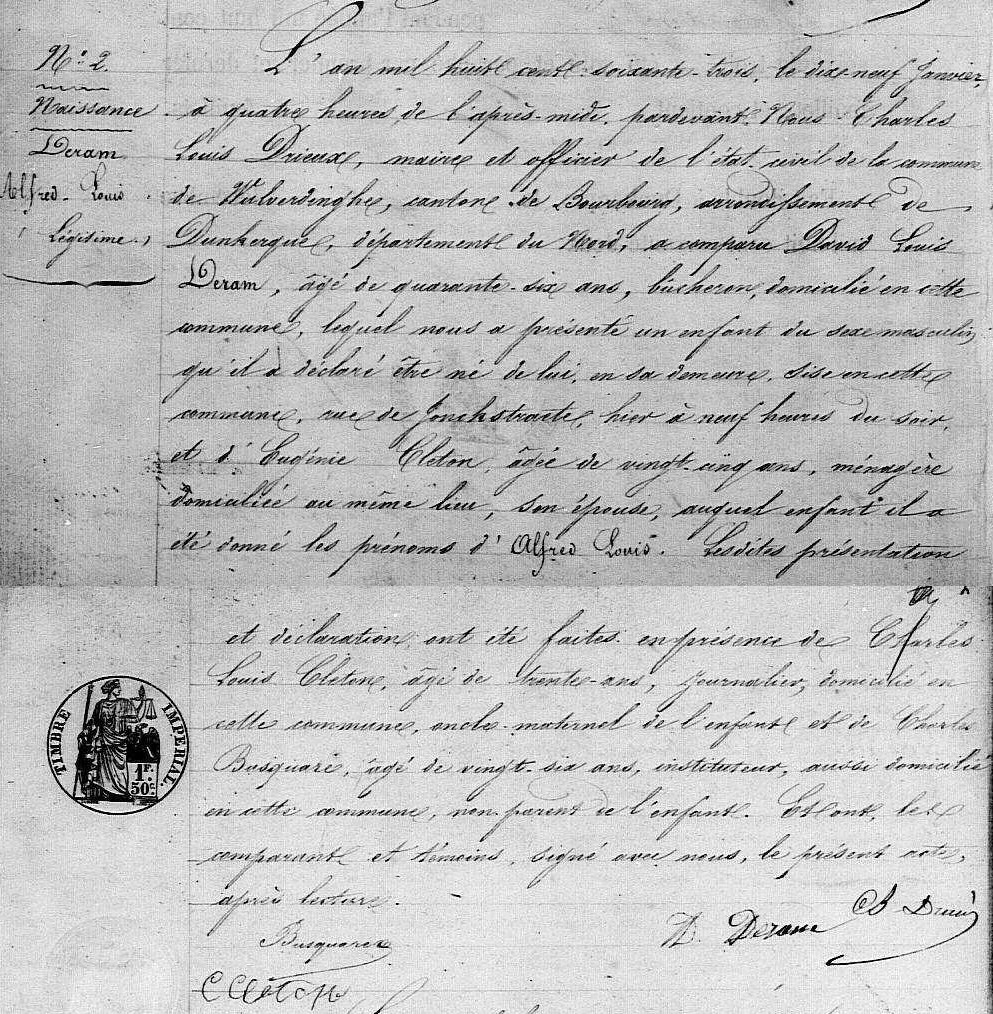 N.º 2.
Naissance
Deram
Alfred Louis
Légitime
L'an mil huit cent soixante-trois, le dix-neuf Janvier,
à quatre heures de l'après-midi, pardevant Nous Charles
Louis Drieux, maire et officier de l'état civil de la commune
de Wulverdinghe, canton de Bourbourg, arrondissement de
Dunkerque, département du Nord, a comparu David Louis
Deram, âgé de quarante-six ans, bûcheron, domicilié en cette
commune, lequel nous a présenté un enfant du sexe masculin
qu'il a déclaré être né de lui, en sa demeure, sise en cette
commune, rue de Jonckstraete, hier à neuf heures du soir,
et d'Eugénie Cleton, âgée de vingt-cinq ans, ménagère
domiciliée au même lieu, son épouse, auquel enfant il a
été donné les prénoms d'Alfred Louis. Lesdites présentation
et déclaration ont été faites en présence de Charles
Louis Cleton, âgé de trente-ans, journalier, domicilié en
cette commune, oncle maternel de l'enfant et de Charles
Busquare, âgé de vingt-six ans, instituteur, aussi domicilié
en cette commune, non parent de l'enfant. Et ont, les
comparant et témoins, signé avec nous, le présent acte,
après lecture.
TIMBRE IMPERIAL.
1F.
50c
D. Deram
Ch Drieux
Busquare
C Cleton